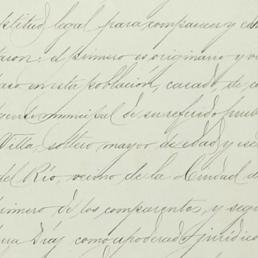 aptitud legal para comparecer y con
taron: el primero es originario y ve
dario en esta población, casado, de c
dente municipal de su referido pueb
Villa, soltero, mayor de edad y ve
del Río, vecino de la Ciudad de
primero de los comparentes, y segu
Díaz como apoderado jurídico